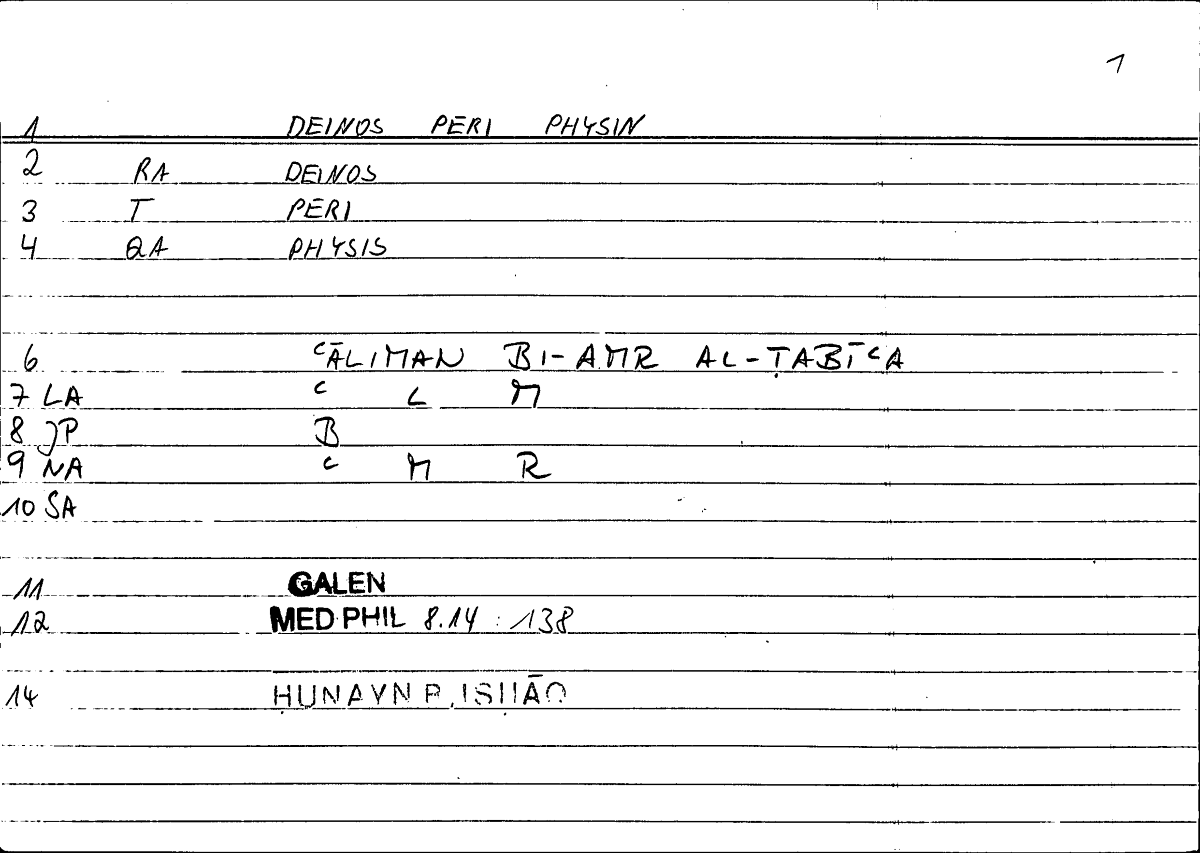 1
1 DEINOS PERI PHYSIN
2 RA DEINOS
3 T PERI
4 QA PHYSIS
6 ʿĀLIMAN BI-AMR AL-ṬABĪʿA
7 LA ʿ L M
8 JP B
9 NA ʿ M R
10 SA
11 GALEN
12 MED PHIL 8.14 : 138
14 ḤUNAYN B. ISḤĀQ